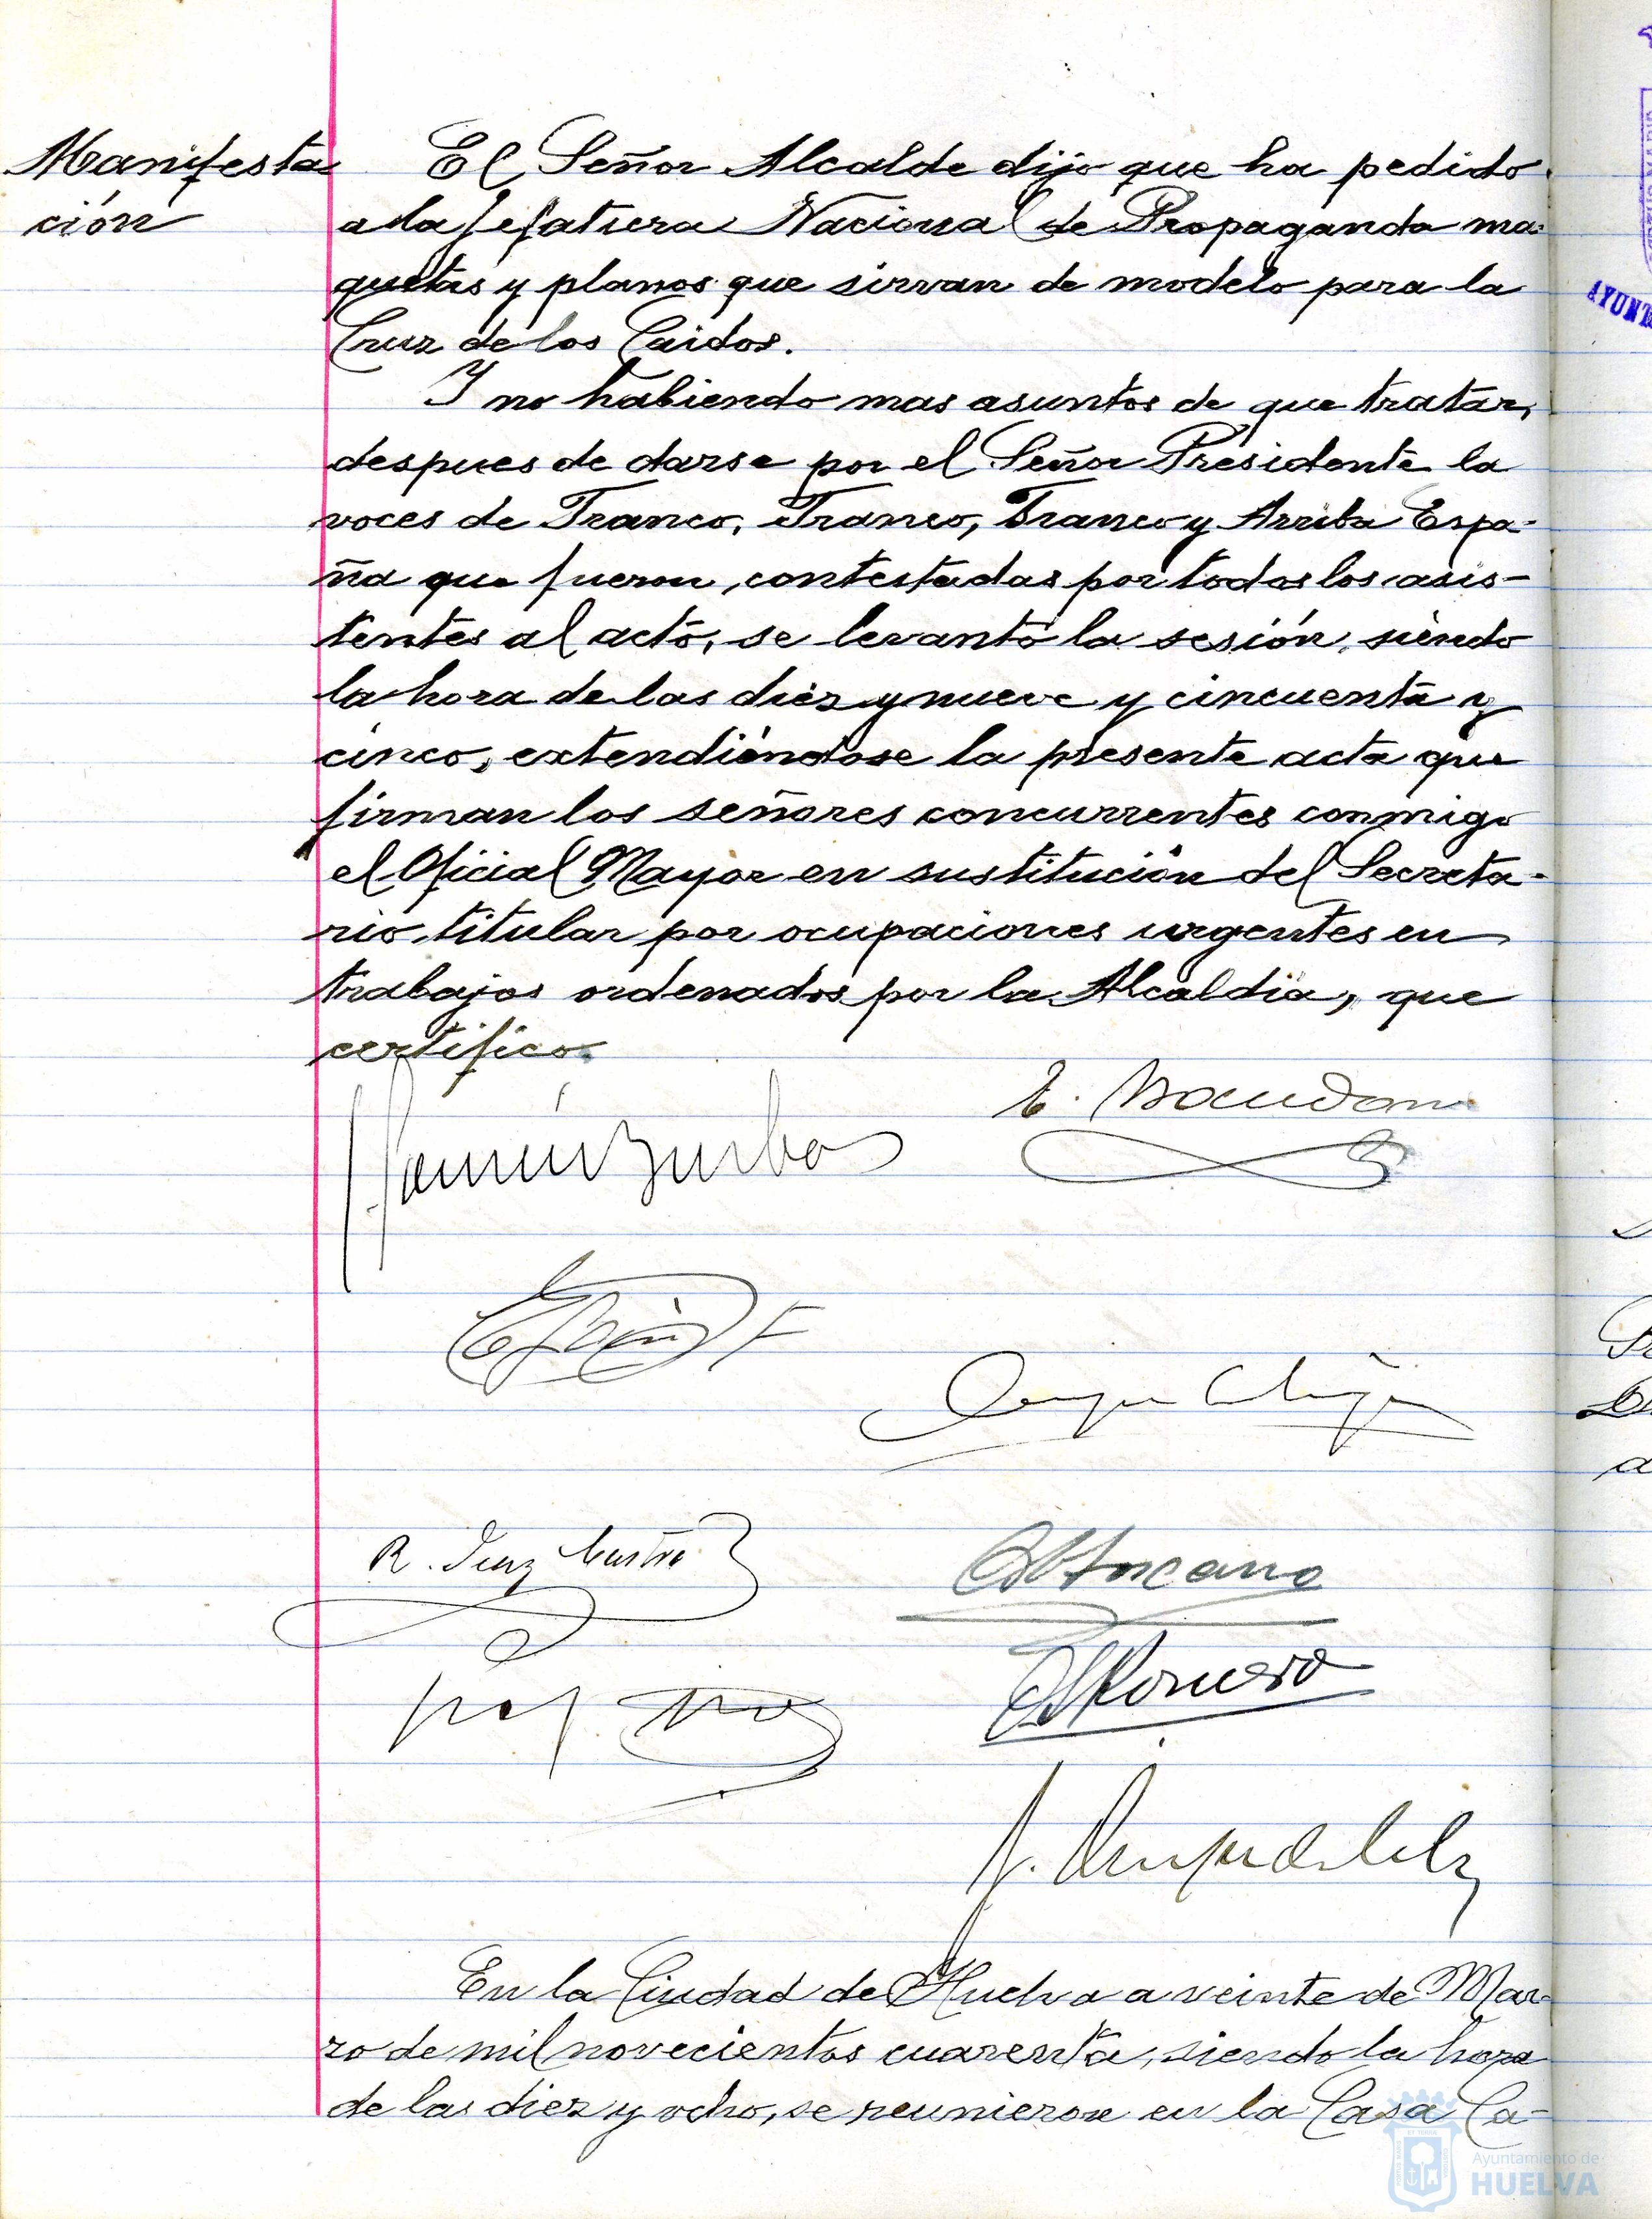 Manifesta
ción
El Señor Alcalde dijo que ha pedido
a la Jefatura Nacional de Propaganda ma-
quetas y planos que sirvan de modelo para la
Cruz de los Caidos.
Y no habiendo mas asuntos de que tratar,
despues de darse por el Señor Presidente la
voces de Franco, Franco, Franco y Arriba Espa-
ña que fueron contestadas por todos los asis-
tentes al acto, se levantó la sesión, siendo
la hora de las diez y nueve y cincuenta y
cinco, extendiéndose la presente acta que
firman los señores concurrentes conmigo
el Oficial Mayor en sustitución del Secreta-
rio titular por ocupaciones urgentes en
trabajos ordenados por la Alcaldía, que
certifico.
R. Diaz Castro
Toscano
Romero
En la Ciudad de Huelva a veinte de Mar-
zo de mil novecientos cuarenta, siendo la hora
de las diez y ocho, se reunieron en la Casa Ca-
Ayuntamiento de
HUELVA
AYUNT